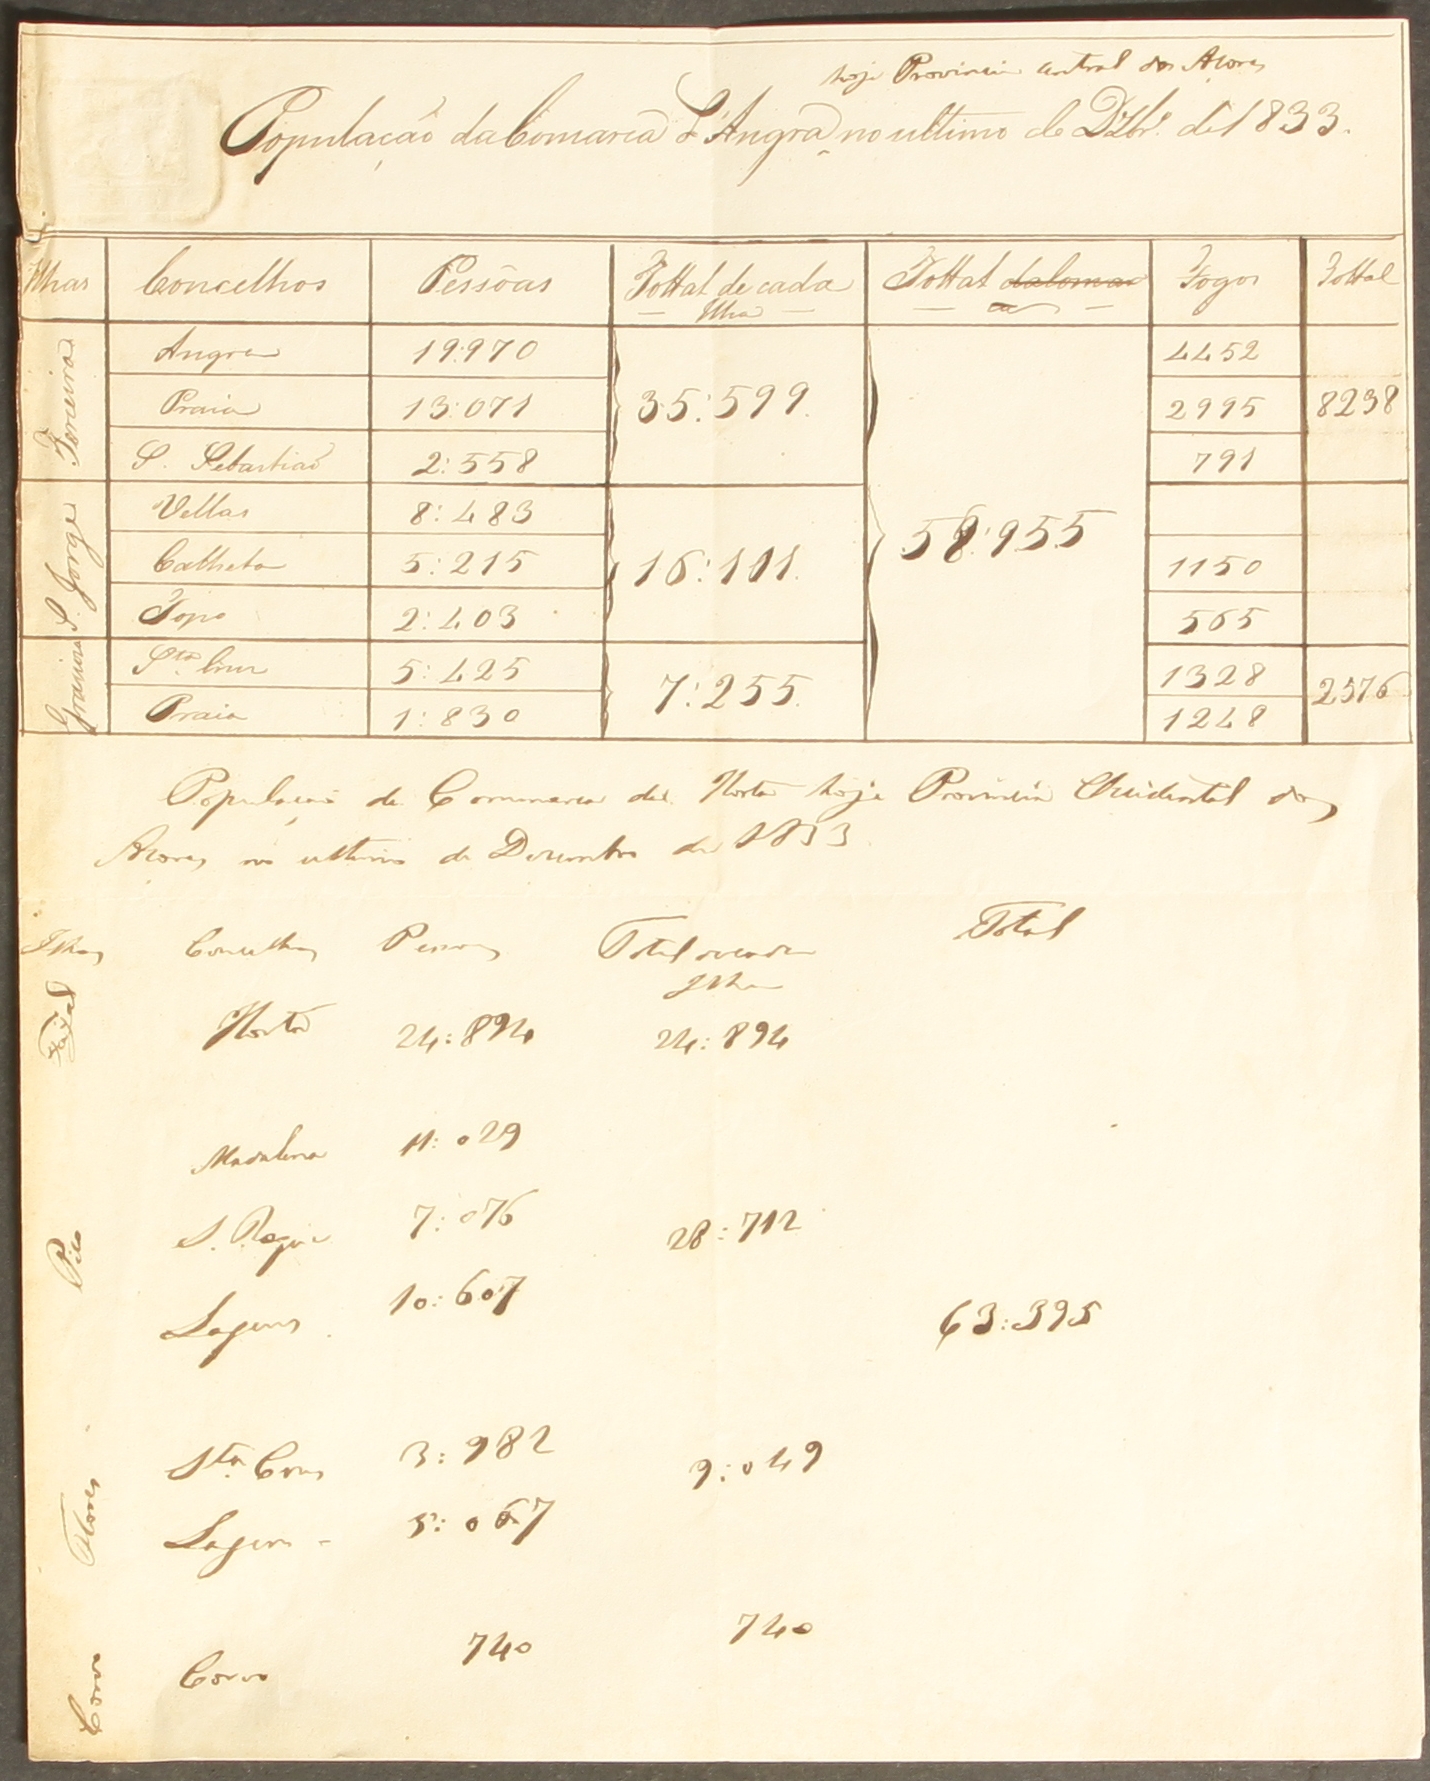 hoje Provincia Central dos Açores
População da Comarca d'Angra no ultimo de Dzbrº de 1833.
Ilhas Concelhos Pessôas Tottal de cada Ilha Tottal da Comarca Fogos Tottal
Terceira Angra 19:970 4452
Praia 13:071 35:599. 2995 8238
S. Sebastiaõ 2:558 791
S. Jorge Vellas 8:483
Calheta 5:215 16:101. 58:955 1150
Topo 2:403 565
Graciosa Sta Cruz 5:425 1328
Praia 1:830 7:255. 1248 2576
População da Commarca da Horta hoje Provincia Occidental dos
Açores no ultimo de Dezembro de 1833
Ilhas Concelhos Pessoas Total de cada Ilha Total
Faÿal Horta 24:894 24:894
Pico Madalena 11:029
S. Roque 7:076 28:712
Lagens 10:607
63:395
Flores Sta Cruz 3:982 9:049
Lagens 5:067
Corvo Corvo 740 740